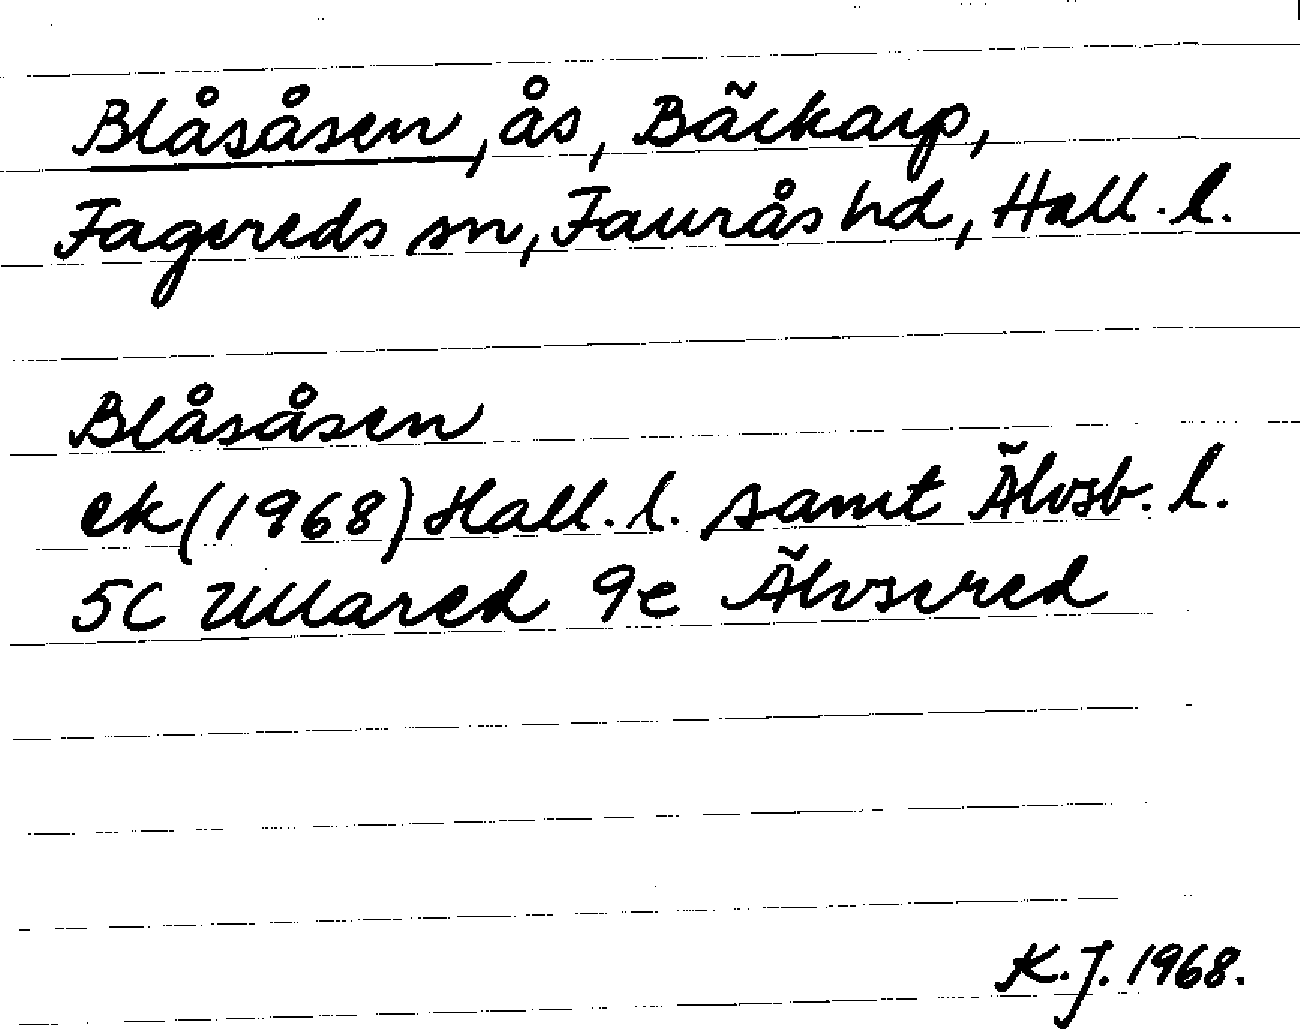 Blåsåsen, ås, Bäckarp,
Fagereds sn, Faurås hd, Hall. l.
Blåsåsen
ek (1968) Hall. l. samt Älvsb. l.
5C Ullared 9e Älvsered
K. J. 1968.